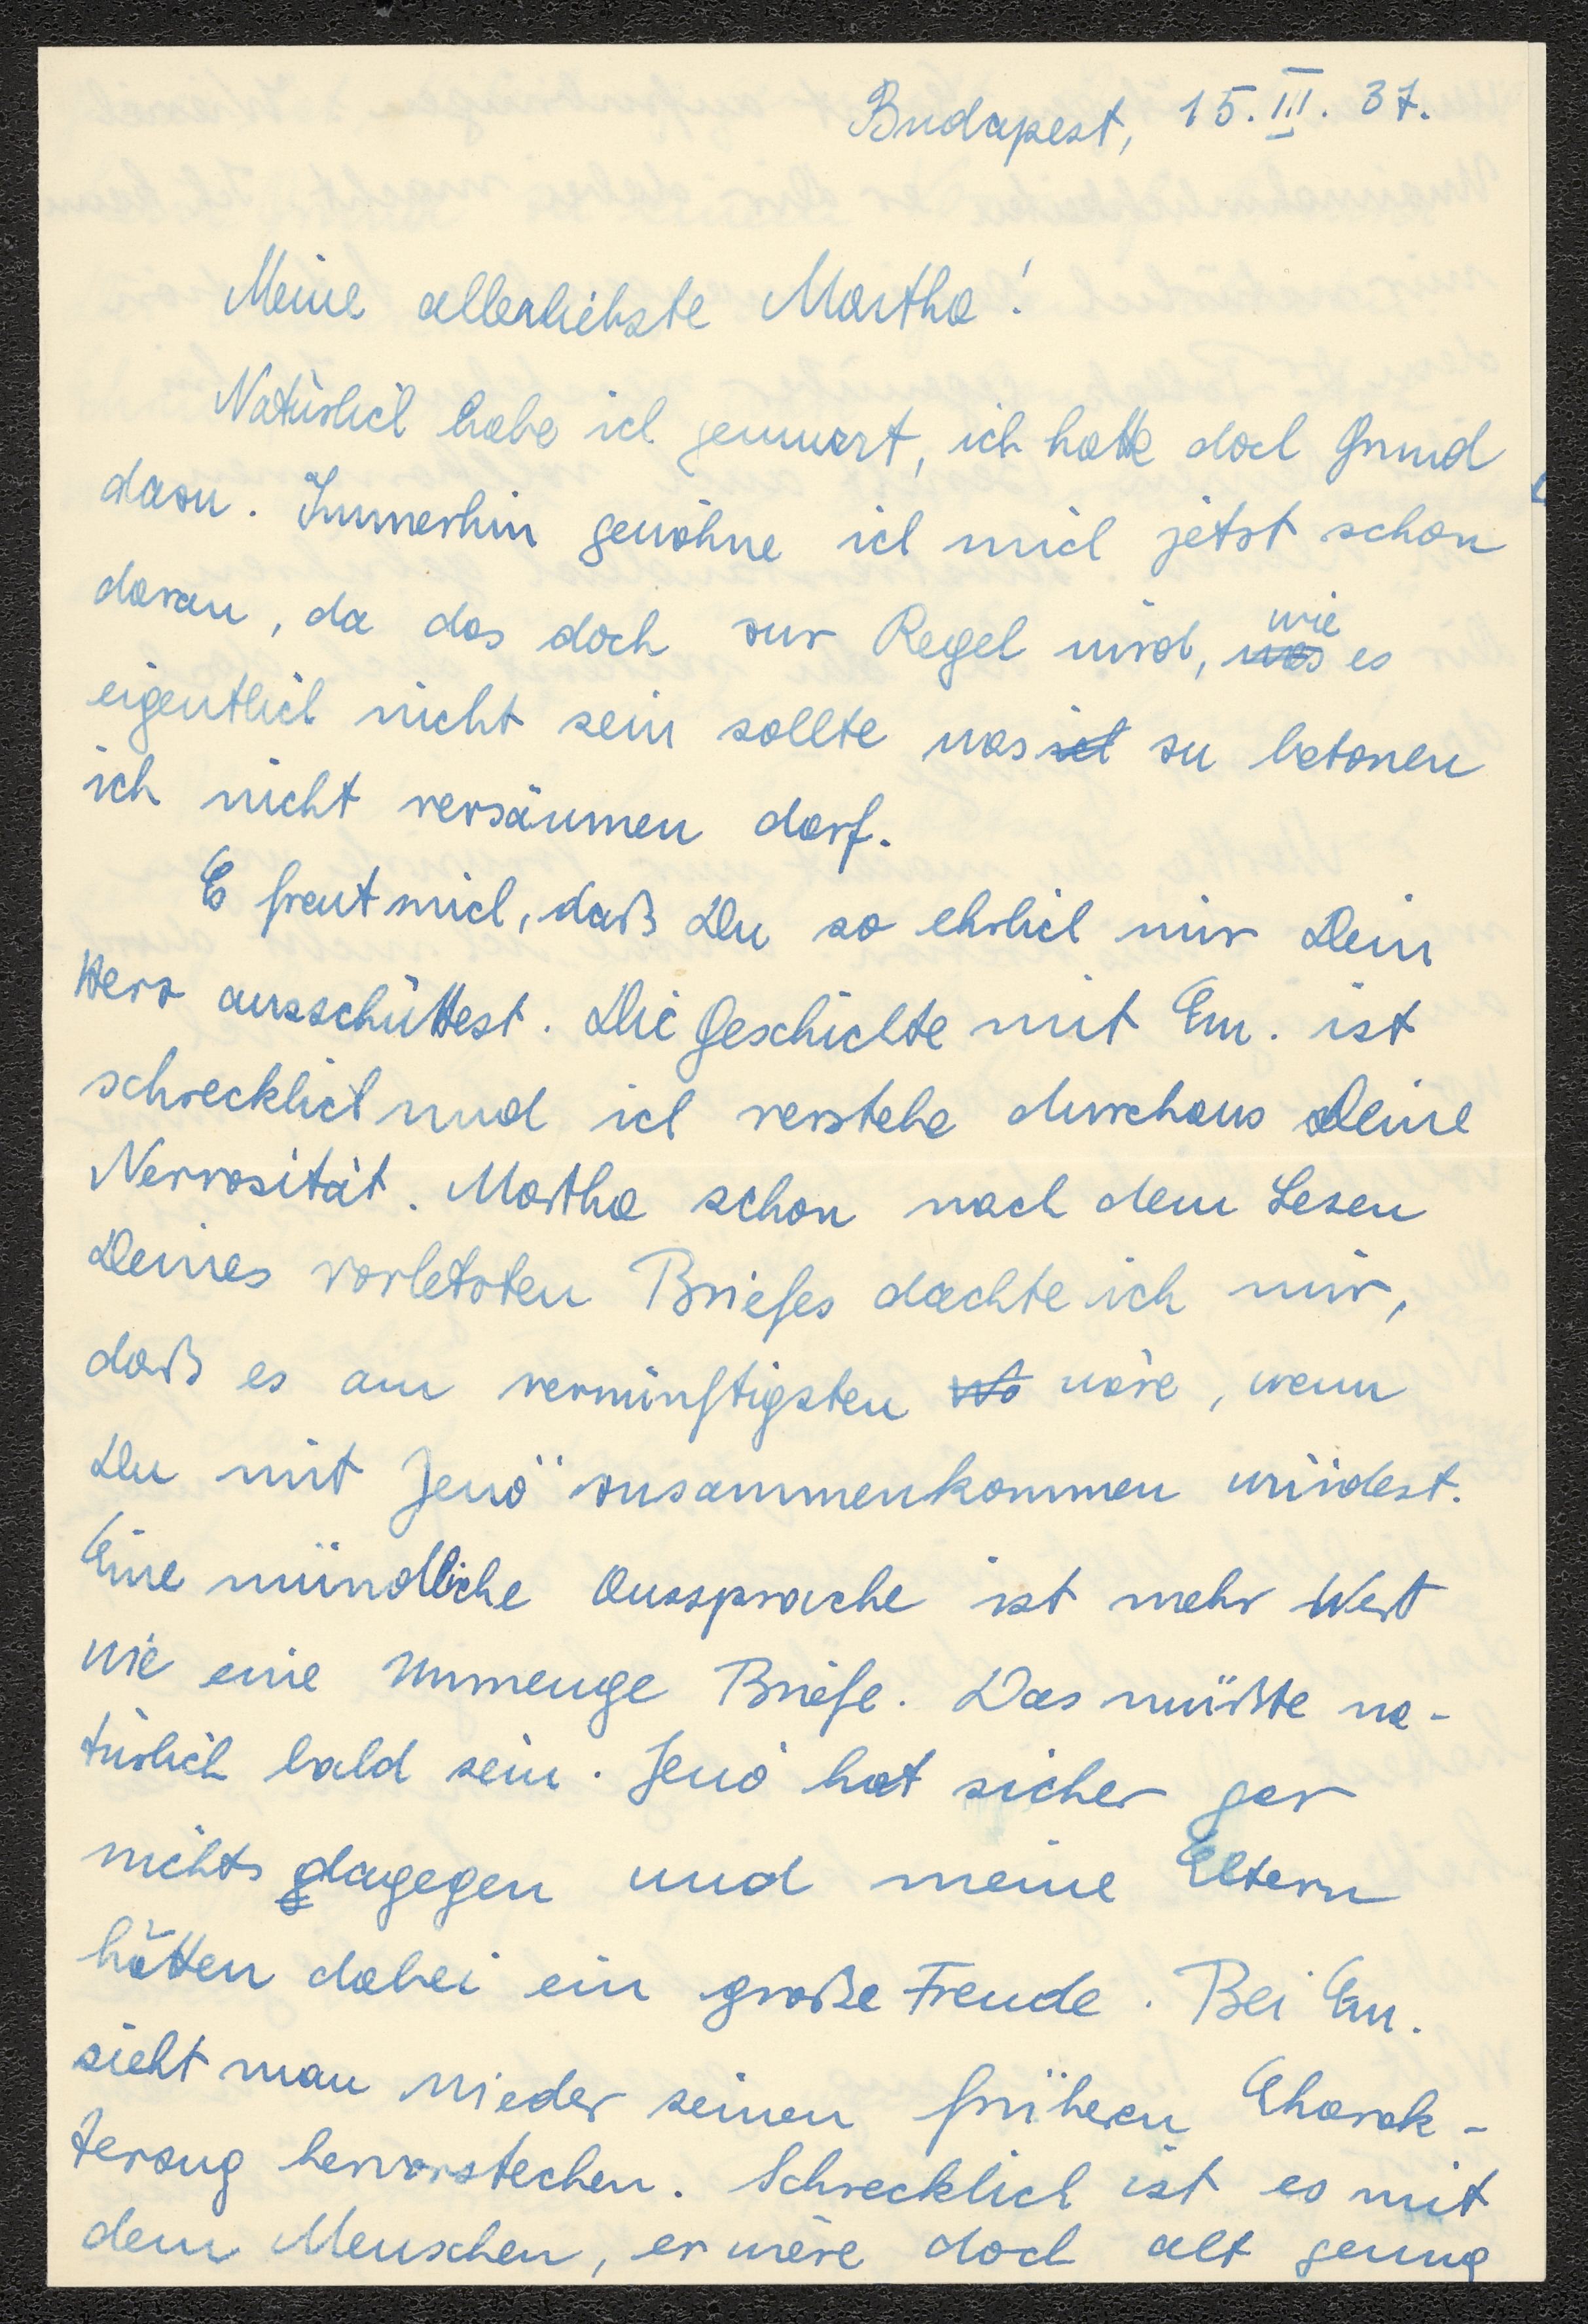 Budapest, 15. III. 37.
Meine allerliebste Martha!
Natürlich habe ich gemurrt, ich hatte doch Grund
dazu. Immerhin gewöhne ich mich jetzt schon
daran, da das doch zur Regel wird, was wie es
eigentlich nicht sein sollte was ich zu betonen
ich nicht versäumen darf.
Es freut mich, daß Du so ehrlich mir Dein
Herz ausschüttest. Die Geschichte mit Em. ist
schrecklich und ich verstehe durchaus Deine
Nervosität. Martha schon nach dem Lesen
Deines vorletzten Briefes dachte ich mir,
daß es am vernünftigsten wäre, wenn
Du mit Jenö zusammenkommen würdest.
Eine mündliche Aussprache ist mehr Wert
wie eine Unmenge Briefe. Das müßte na-
türlich bald sein. Jenö hat sicher gar
nichts dagegen und meine Eltern
hätten dabei ein große Freude. Bei Em.
sieht man wieder seinen frühern Charak-
terzug hervorstechen. Schrecklich ist es mit
dem Menschen, er wäre doch alt genug